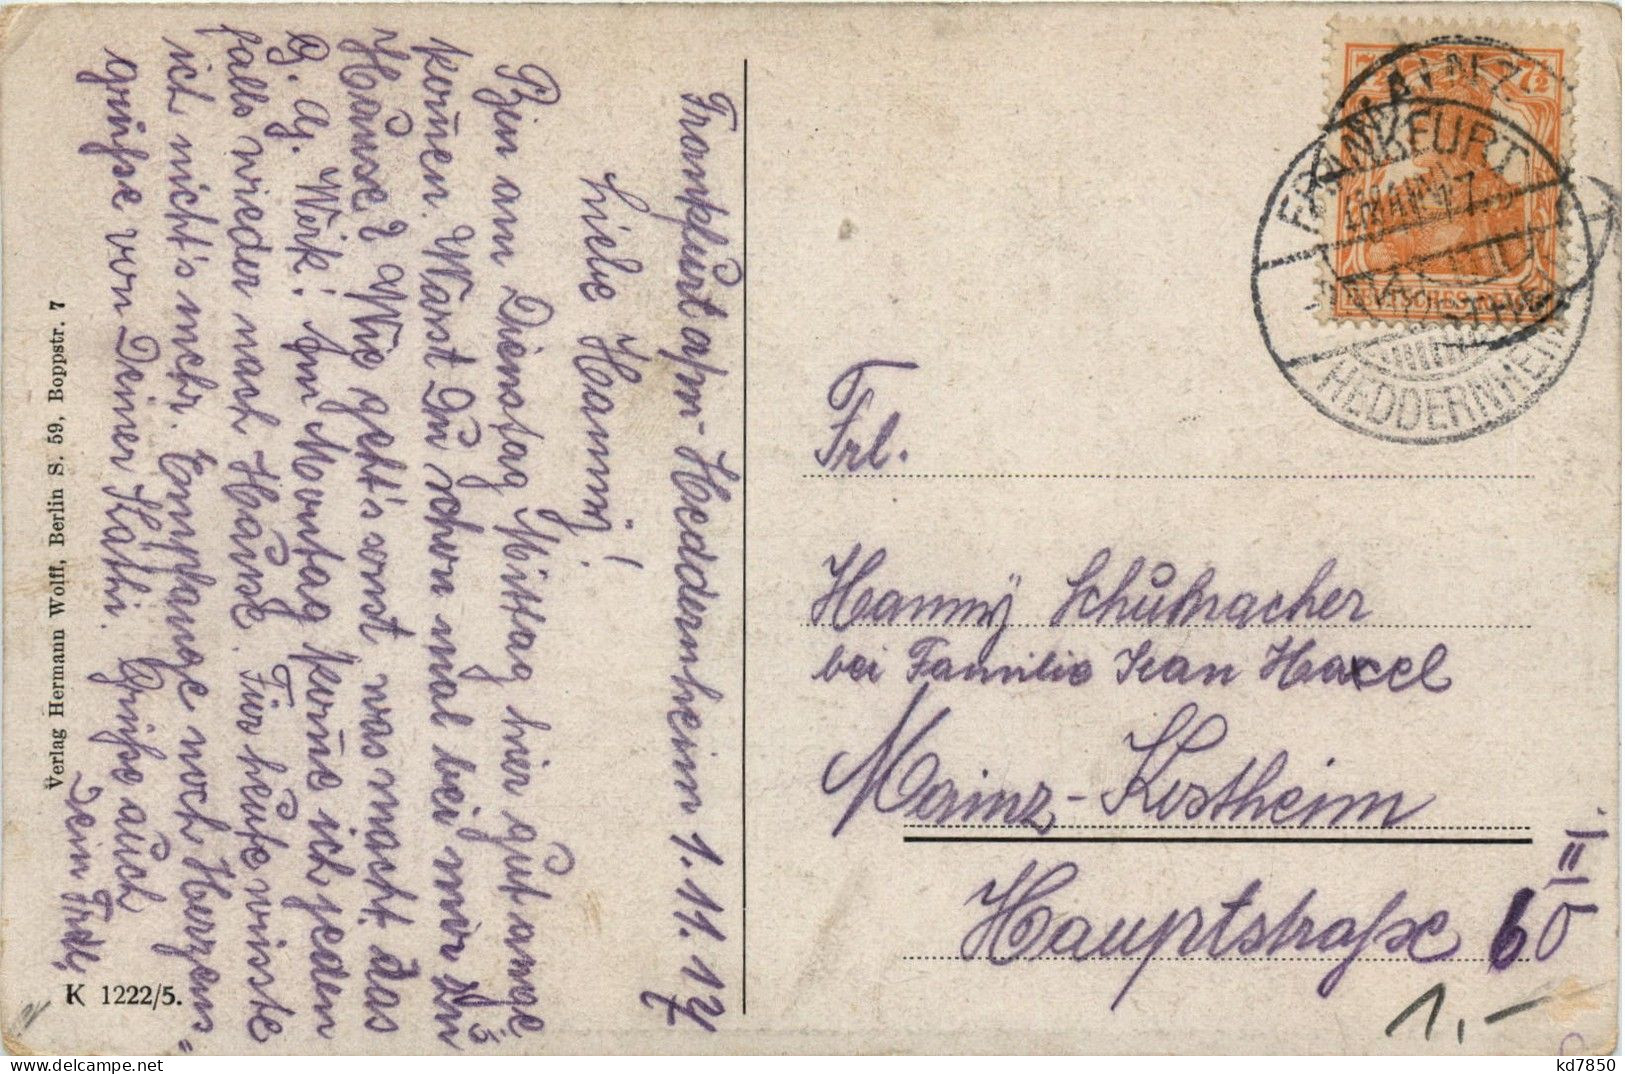 Frankfurt a/m-Heddernheim 1.11.17
Liebe Hanny!
Bin am Dienstag Mittag hier gut ange
komen. Warst Du schon mal bei mir zu
Hause? Wie geht's sonst was macht das
G. G. Werk! Am Montag kome ich jeden
falls wieder nach Hause. Für heute wisste
ich nicht's mehr. Empfange noch Herzens=
grüße von Deiner Käthi. Grüße auch
Dein
Verlag Hermann Wolff, Berlin S. 59, Boppstr. 7
K 1222/5.
7½ 7½
DEUTSCHES REICH
MAINZ
FRANKFURT
HEDDERNHEIM
Frl.
Hanny Schuhmacher
bei Familie Jean
Mainz-Kostheim
Hauptstraße 60 II.
1,-
kd7850